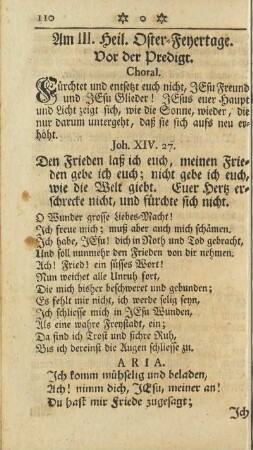 110
Am III. Heil. Oster-Feyertage.
Vor der Predigt.
Choral.
Fürchtet und entsetzt euch nicht, JEsu Freund
und JEsu Glieder! JEsus euer Haupt
und Licht zeigt sich, wie die Sonne, wieder, die
nur darum untergeht, daß sie sich aufs neu er-
höht.
Joh. XIV. 27.
Den Frieden laß ich euch, meinen Frie-
den gebe ich euch; nicht gebe ich euch,
wie die Welt giebt. Euer Hertz er-
schrecke nicht, und fürchte sich nicht.
O Wunder grosse Liebes-Macht!
Ich freue mich; muß aber auch mich schämen.
Ich habe, JEsu! dich in Noth und Tod gebracht,
Und soll nunmehr den Frieden von dir nehmen.
Ach! Fried! ein süsses Wort!
Nun weichet alle Unruh fort,
Die mich bisher beschweret und gebunden;
Es fehlt mir nicht, ich werde selig seyn,
Ich schliesse mich in JEsu Wunden,
Als eine wahre Freystadt, ein;
Da find ich Trost und sichre Ruh,
Bis ich dereinst die Augen schliesse zu.
ARIA.
Ich komm mühselig und beladen,
Ach! nimm dich, JEsu, meiner an!
Du hast mir Friede zugesagt;
Ich